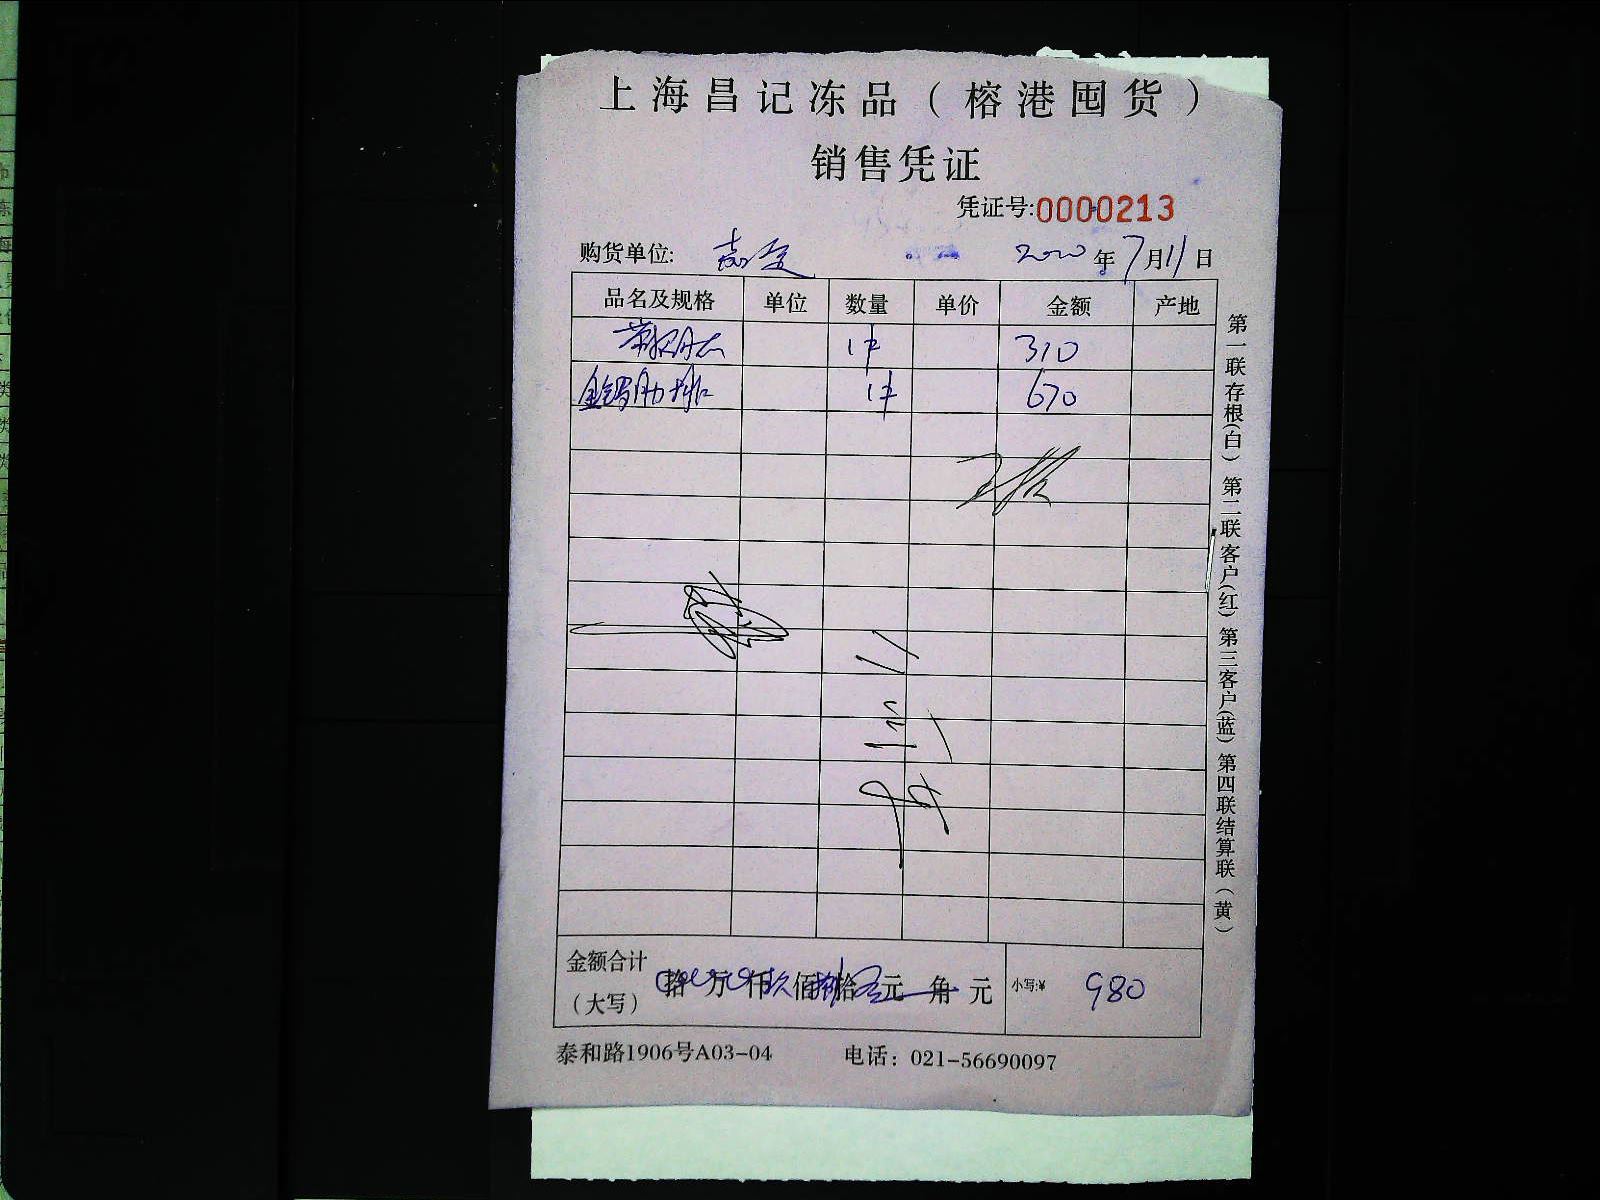 上海昌记冻品（榕港囤货）
销售凭证
凭证号:0000213
购货单位: 嘉定 2020年7月11日
品名及规格 单位 数量 单价 金额 产地
1件 310
肋排 1件 670
金额合计（大写） 拾 万 仟玖佰捌拾 元 角 元 小写:¥ 980
泰和路1906号A03-04 电话：021-56690097
第一联存根（白）第二联客户（红）第三客户（蓝）第四联结算联（黄）